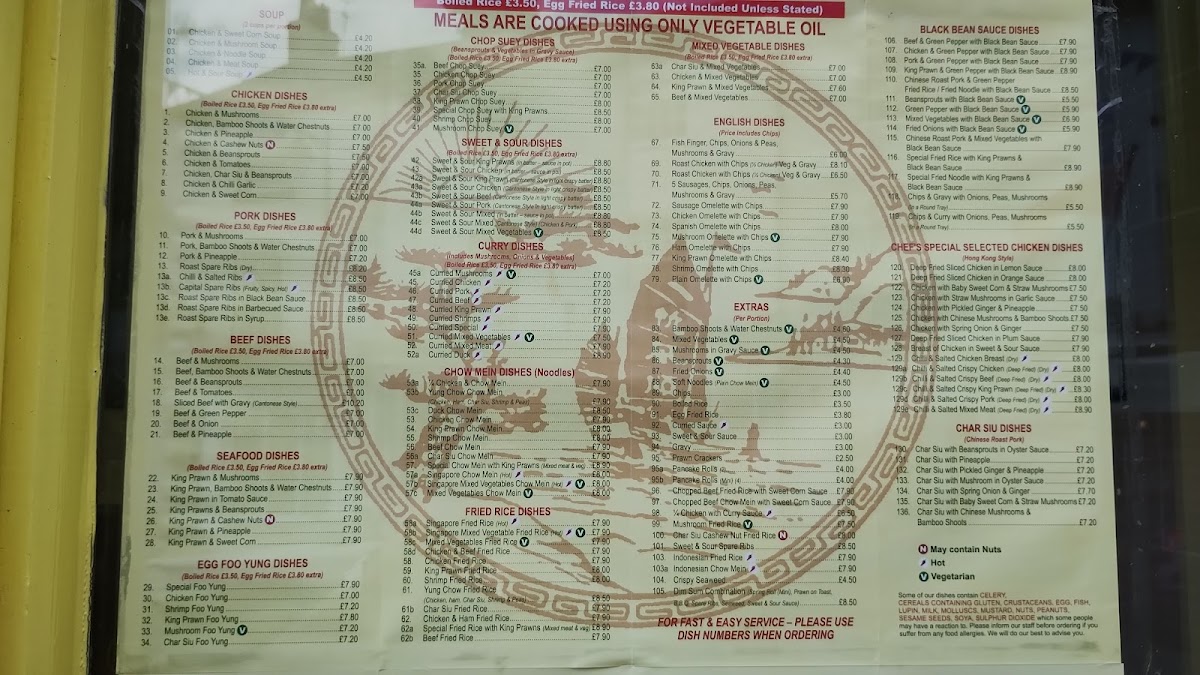 Boiled Rice £3.50, Egg Fried Rice £3.80 (Not Included Unless Stated)
MEALS ARE COOKED USING ONLY VEGETABLE OIL
SOUP
01. Chicken & Sweet Corn Soup £4.20
02. Chicken & Mushroom Soup £4.20
03. Chicken & Noodle Soup £4.20
04. Chicken & Meat Soup £4.20
05. Hot & Sour Soup £4.50
CHICKEN DISHES
(Boiled Rice £3.50, Egg Fried Rice £3.80 extra)
1. Chicken & Mushrooms £7.00
2. Chicken, Bamboo Shoots & Water Chestnuts £7.00
3. Chicken & Pineapple £7.00
4. Chicken & Cashew Nuts N £7.50
5. Chicken & Beansprouts
6. Chicken & Tomatoes
7. Chicken, Char Siu & Beansprouts
8. Chicken & Chilli Garlic £7.20
9. Chicken & Sweet Corn £7.00
PORK DISHES
(Boiled Rice £3.50, Egg Fried Rice £3.80 extra)
10. Pork & Mushrooms £7.00
11. Pork, Bamboo Shoots & Water Chestnuts £7.00
12. Pork & Pineapple £7.00
13. Roast Spare Ribs (Dry) £8.20
13a. Chilli & Salted Ribs £8.50
13b. Capital Spare Ribs (Fruity, Spicy Hot) £8.50
13c. Roast Spare Ribs in Black Bean Sauce £8.50
13d. Roast Spare Ribs in Barbecued Sauce £8.50
13e. Roast Spare Ribs in Syrup £8.50
BEEF DISHES
(Boiled Rice £3.50, Egg Fried Rice £3.80 extra)
14. Beef & Mushrooms £7.00
15. Beef, Bamboo Shoots & Water Chestnuts £7.00
16. Beef & Beansprouts £7.00
17. Beef & Tomatoes £7.00
18. Sliced Beef with Gravy (Cantonese Style) £10.20
19. Beef & Green Pepper £7.00
20. Beef & Onion £7.00
21. Beef & Pineapple £7.00
SEAFOOD DISHES
(Boiled Rice £3.50, Egg Fried Rice £3.80 extra)
22. King Prawn & Mushrooms £7.90
23. King Prawn, Bamboo Shoots & Water Chestnuts £7.90
24. King Prawn in Tomato Sauce £7.90
25. King Prawns & Beansprouts £7.90
26. King Prawn & Cashew Nuts N £7.90
27. King Prawn & Pineapple £7.90
28. King Prawn & Sweet Corn £7.90
EGG FOO YUNG DISHES
(Boiled Rice £3.50, Egg Fried Rice £3.80 extra)
29. Special Foo Yung £7.90
30. Chicken Foo Yung £7.20
31. Shrimp Foo Yung £7.20
32. King Prawn Foo Yung £7.80
33. Mushroom Foo Yung V £7.20
34. Char Siu Foo Yung £7.20
CHOP SUEY DISHES
(Beansprouts & Vegetables in Gravy Sauce)
(Boiled Rice £3.50, Egg Fried Rice £3.80 extra)
35a. Beef Chop Suey £7.00
35. Chicken Chop Suey £7.00
36. Pork Chop Suey £7.00
37. Char Siu Chop Suey £7.00
38. King Prawn Chop Suey £8.00
39. Special Chop Suey with King Prawns £8.00
40. Shrimp Chop Suey £8.00
41. Mushroom Chop Suey V £7.00
SWEET & SOUR DISHES
(Boiled Rice £3.50, Egg Fried Rice £3.80 extra)
42. Sweet & Sour King Prawns (in batter – sauce in pot) £8.80
43. Sweet & Sour Chicken (in batter – sauce in pot) £8.50
42a. Sweet & Sour King Prawn (Cantonese Style in light crispy batter) £8.80
43a. Sweet & Sour Chicken (Cantonese Style in light crispy batter) £8.50
43b. Sweet & Sour Beef (Cantonese Style in light crispy batter) £8.50
44a. Sweet & Sour Pork £8.50
44b. Sweet & Sour Mixed £8.80
44c. Sweet & Sour Mixed £8.50
44d. Sweet & Sour Mixed Vegetables V £8.50
CURRY DISHES
(Includes Mushrooms, Onions & Vegetables)
(Boiled Rice £3.50, Egg Fried Rice £3.80 extra)
45a. Curried Mushrooms V £7.00
45. Curried Chicken £7.20
46. Curried Pork £7.20
47. Curried Beef £7.20
48. Curried King Prawn £7.90
49. Curried Shrimps £7.90
50. Curried Special £7.90
51. Curried Mixed Vegetables V £7.50
52. Curried Mixed Meat £7.90
52a. Curried Duck
CHOW MEIN DISHES (Noodles)
53a. ¼ Chicken & Chow Mein £7.90
53b. Yung Chow Chow Mein
(Chicken, Ham, Char Siu, Shrimp & Peas) £8.50
53c. Duck Chow Mein
53. Chicken Chow Mein £7.90
54. King Prawn Chow Mein
55. Shrimp Chow Mein
56. Beef Chow Mein £7.90
56a. Char Siu Chow Mein £7.90
57. Special Chow Mein with King Prawns (Mixed meat & veg) £8.00
57a. Singapore Chow Mein (Hot) £8.00
57b. Singapore Mixed Vegetables Chow Mein (Hot) V £8.00
57c. Mixed Vegetables Chow Mein V £8.00
FRIED RICE DISHES
58a. Singapore Fried Rice (Hot) £7.90
58b. Singapore Mixed Vegetable Fried Rice (Hot) V £7.90
58c. Mixed Vegetables Fried Rice V £7.90
58d. Chicken & Beef Fried Rice £7.90
58. Chicken Fried Rice £7.90
59. King Prawn Fried Rice £8.00
60. Shrimp Fried Rice £8.00
61. Yung Chow Fried Rice
(Chicken, ham, Char Siu, Shrimp & Peas) £8.50
61b. Char Siu Fried Rice £7.90
62. Chicken & Ham Fried Rice £7.90
62a. Special Fried Rice with King Prawns (Mixed meat & veg) £8.90
62b. Beef Fried Rice £7.90
MIXED VEGETABLE DISHES
(Boiled Rice £3.50, Egg Fried Rice £3.80 extra)
63a. Char Siu & Mixed Vegetables £7.00
63. Chicken & Mixed Vegetables £7.00
64. King Prawn & Mixed Vegetables £7.60
65. Beef & Mixed Vegetables £7.00
ENGLISH DISHES
(Price Includes Chips)
67. Fish Finger, Chips, Onions & Peas,
Mushrooms & Gravy £6.00
69. Roast Chicken with Chips (½ Chicken) Veg & Gravy £8.10
70. Roast Chicken with Chips (¼ Chicken) Veg & Gravy £6.50
71. 5 Sausages, Chips, Onions, Peas,
Mushrooms & Gravy £5.70
72. Sausage Omelette with Chips £7.90
73. Chicken Omelette with Chips £7.90
74. Spanish Omelette with Chips £8.00
75. Mushroom Omelette with Chips V £7.90
76. Ham Omelette with Chips £7.90
77. King Prawn Omelette with Chips £8.40
78. Shrimp Omelette with Chips £8.30
79. Plain Omelette with Chips V £6.90
EXTRAS
(Per Portion)
83. Bamboo Shoots & Water Chestnuts V £4.60
84. Mixed Vegetables V £4.50
85. Mushrooms in Gravy Sauce V £4.50
86. Beansprouts V £4.30
87. Fried Onions V £4.40
88. Soft Noodles (Plain Chow Mein) V £4.50
89. Chips £3.00
90. Boiled Rice £3.50
91. Egg Fried Rice £3.80
92. Curried Sauce £3.00
93. Sweet & Sour Sauce £3.00
94. Gravy £3.00
95. Prawn Crackers £2.50
95a. Pancake Rolls £4.00
95b. Pancake Rolls (Mini) (4) £4.00
96. Chopped Beef Fried Rice with Sweet Corn Sauce £7.90
97. Chopped Beef Chow Mein with Sweet Corn Sauce £7.90
98. ¼ Chicken with Curry Sauce £6.50
99. Mushroom Fried Rice V £7.50
100. Char Siu Cashew Nut Fried Rice N £8.00
101. Sweet & Sour Spare Ribs £8.50
103. Indonesian Fried Rice £7.90
103a. Indonesian Chow Mein £7.90
104. Crispy Seaweed £4.50
105. Dim Sum Combination (Spring Roll (Mini), Prawn on Toast,
B.B.Q. Spare Ribs, Seaweed, Sweet & Sour Sauce) £8.50
FOR FAST & EASY SERVICE – PLEASE USE
DISH NUMBERS WHEN ORDERING
BLACK BEAN SAUCE DISHES
106. Beef & Green Pepper with Black Bean Sauce £7.90
107. Chicken & Green Pepper with Black Bean Sauce £7.90
108. Pork & Green Pepper with Black Bean Sauce £7.90
109. King Prawn & Green Pepper with Black Bean Sauce £7.90
110. Chinese Roast Pork & Green Pepper
Fried Rice / Fried Noodle with Black Bean Sauce £8.50
111. Beansprouts with Black Bean Sauce V £5.90
112. Green Pepper with Black Bean Sauce V £5.90
113. Mixed Vegetables with Black Bean Sauce V £6.90
114. Fried Onions with Black Bean Sauce V £5.90
115. Chinese Roast Pork & Mixed Vegetables with
Black Bean Sauce £7.90
116. Special Fried Rice with King Prawns &
Black Bean Sauce £8.90
117. Special Fried Noodle with King Prawns &
Black Bean Sauce £8.90
118. Chips & Gravy with Onions, Peas, Mushrooms
(In a Round Tray) £5.50
119. Chips & Curry with Onions, Peas, Mushrooms
(In a Round Tray) £5.50
CHEF'S SPECIAL SELECTED CHICKEN DISHES
(Hong Kong Style)
120. Deep Fried Sliced Chicken in Lemon Sauce £8.00
121. Deep Fried Sliced Chicken in Orange Sauce £8.00
122. Chicken with Baby Sweet Corn & Straw Mushrooms £7.50
123. Chicken with Straw Mushrooms in Garlic Sauce £7.50
124. Chicken with Pickled Ginger & Pineapple £7.50
125. Chicken with Chinese Mushrooms & Bamboo Shoots £7.50
126. Chicken with Spring Onion & Ginger £7.50
127. Deep Fried Sliced Chicken in Plum Sauce £7.90
128. Breast of Chicken in Sweet & Sour Sauce £7.90
129. Chilli & Salted Chicken Breast (Dry) £8.00
129a. Chilli & Salted Crispy Chicken (Deep Fried) (Dry) £8.00
129b. Chilli & Salted Crispy Beef (Deep Fried) (Dry) £8.00
129c. Chilli & Salted Crispy King Prawn (Deep Fried) (Dry) £8.30
129d. Chilli & Salted Crispy Pork (Deep Fried) (Dry) £8.00
129e. Chilli & Salted Mixed Meat (Deep Fried) (Dry) £8.90
CHAR SIU DISHES
(Chinese Roast Pork)
130. Char Siu with Beansprouts in Oyster Sauce £7.20
131. Char Siu with Pineapple £7.20
132. Char Siu with Pickled Ginger & Pineapple £7.20
133. Char Siu with Mushroom in Oyster Sauce £7.20
134. Char Siu with Spring Onion & Ginger £7.70
135. Char Siu with Baby Sweet Corn & Straw Mushrooms £7.20
136. Char Siu with Chinese Mushrooms &
Bamboo Shoots £7.20
N May contain Nuts
Hot
V Vegetarian
Some of our dishes contain CELERY,
CEREALS CONTAINING GLUTEN, CRUSTACEANS, EGG, FISH,
LUPIN, MILK, MOLLUSCS, MUSTARD, NUTS, PEANUTS,
SESAME SEEDS, SOYA, SULPHUR DIOXIDE which some people
may have a reaction to. Please inform our staff before ordering if you
suffer from any food allergies. We will do our best to advise you.